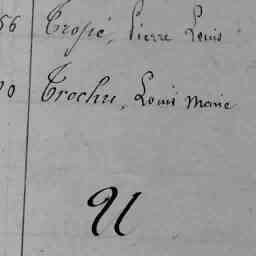 56 Tropé, Pierre Louis
0 Trochu, Louis Marie
U